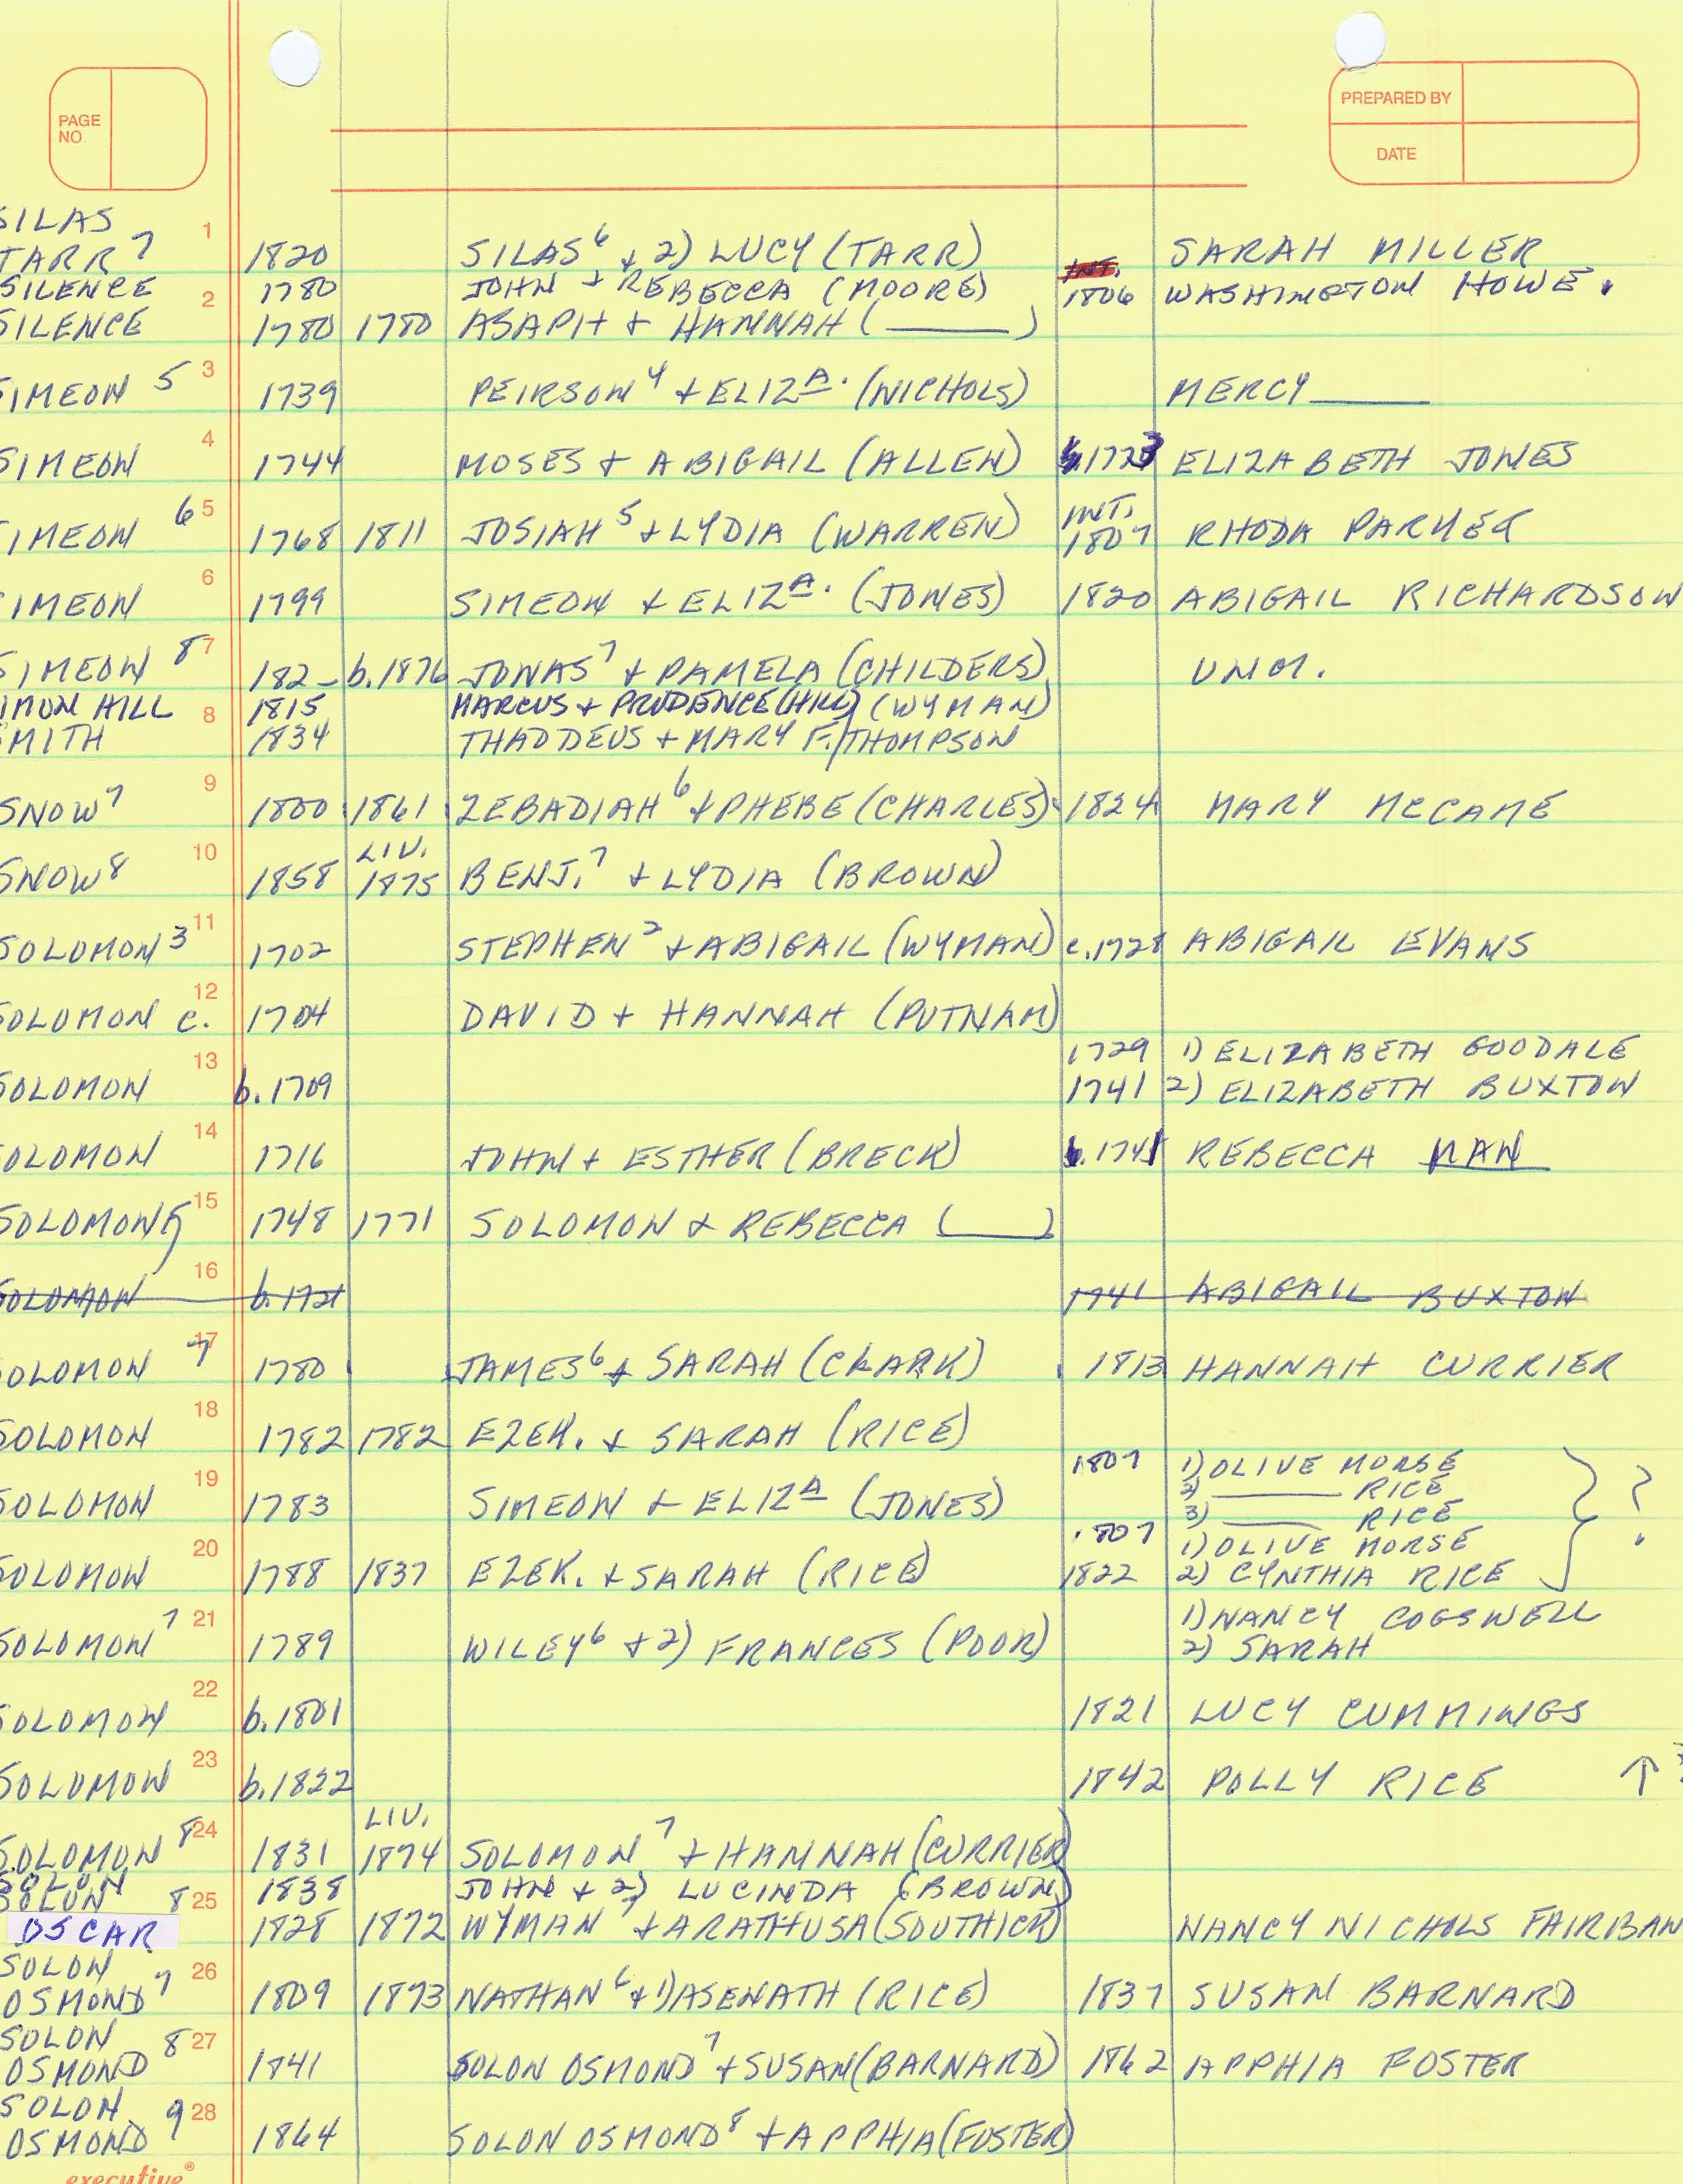 PAGE NO
PREPARED BY
DATE
SILAS
TARR 7 1 1820 SILAS 6 + 2) LUCY (TARR) SARAH MILLER
SILENCE 2 1780 JOHN + REBECCA (MOORE) INT. 1806 WASHINGTON HOWE.
SILENCE 1780 1780 ASAPH + HANNAH (______)
SIMEON 5 3 1739 PEIRSON 4 + ELIZA. (NICHOLS) MERCY ______
SIMEON 4 1744 MOSES + ABIGAIL (ALLEN) b.1773 ELIZABETH JONES
IMEON 6 5 1768 1811 JOSIAH 5 + LYDIA (WARREN) INT. 1807 RHODA PARKER
IMEON 6 1799 SIMEON + ELIZA. (JONES) 1820 ABIGAIL RICHARDSON
SIMEON 8 7 182_ b.1876 JONAS 7 + PAMELA (CHILDERS) UNM.
IMON HILL 8 1815 MARCUS + PRUDENCE (HILL) (WYMAN)
MITH 1834 THADDEUS + MARY F. THOMPSON
SNOW 7 9 1800 1861 ZEBADIAH 6 + PHEBE (CHARLES) 1824 MARY McCAME
SNOW 8 10 1858 LIV. 1875 BENJ. 7 + LYDIA (BROWN)
SOLOMON 3 11 1702 STEPHEN 2 + ABIGAIL (WYMAN) c.1728 ABIGAIL EVANS
SOLOMON c. 12 1704 DAVID + HANNAH (PUTNAM)
1729 1) ELIZABETH GOODALE
SOLOMON 13 b.1709 1741 2) ELIZABETH BUXTON
OLOMON 14 1716 JOHN + ESTHER (BRECK) b.1741 REBECCA MAN
SOLOMON 5 15 1748 1771 SOLOMON + REBECCA (______)
SOLOMON 16 b.1721 1741 ABIGAIL BUXTON
OLOMON 7 17 1780 JAMES 6 + SARAH (CLARK) 1813 HANNAH CURRIER
SOLOMON 18 1782 1782 EZEK. + SARAH (RICE)
1807 1) OLIVE MORSE
2) ______ RICE
SOLOMON 19 1783 SIMEON + ELIZA (JONES) 3) ______ RICE ?
1807 1) OLIVE MORSE
SOLOMON 20 1788 1837 EZEK. + SARAH (RICE) 1822 2) CYNTHIA RICE
1) NANCY COGSWELL
SOLOMON 7 21 1789 WILEY 6 + 2) FRANCES (POOR) 2) SARAH
SOLOMON 22 b.1801 1821 LUCY CUMMINGS
SOLOMON 23 b.1822 1842 POLLY RICE ↑
SOLOMON 8 24 1831 LIV. 1874 SOLOMON 7 + HANNAH (CURRIER)
SOLON 1838 JOHN + 2) LUCINDA (BROWN)
SOLON 8 25
OSCAR 1828 1872 WYMAN 7 + ARATHUSA (SOUTHICK) NANCY NICHOLS FAIRBAN
SOLON
OSMOND 7 26 1809 1893 NATHAN 6 + 1) ASENATH (RICE) 1837 SUSAN BARNARD
SOLON
OSMOND 8 27 1841 SOLON OSMOND 7 + SUSAN (BARNARD) 1862 APPHIA FOSTER
SOLON
OSMOND 9 28 1864 SOLON OSMOND 8 + APPHIA (FOSTER)
executive®